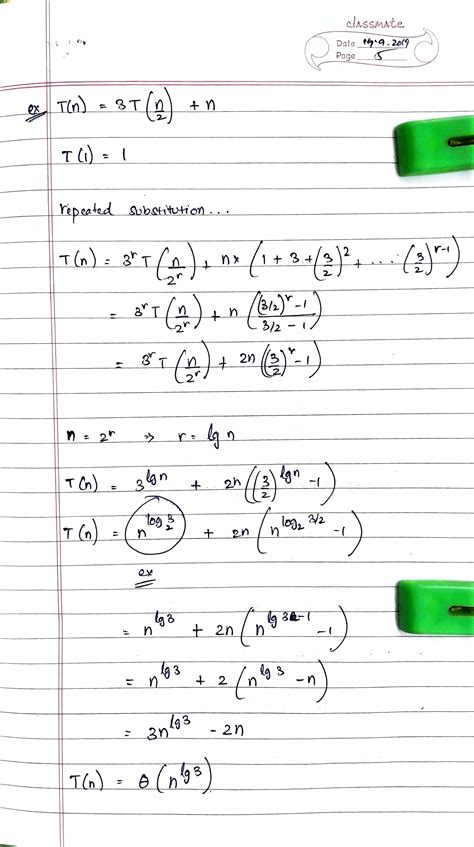 classmate
Date 19.9.2019
Page 5
ex T(n) = 3T(n/2) + n
T(1) = 1
repeated substitution...
T(n) = 3^r T(n/2^r) + n × (1 + 3 + (3/2)^2 + ... (3/2)^(r-1))
= 3^r T(n/2^r) + n (((3/2)^r - 1)/(3/2 - 1))
= 3^r T(n/2^r) + 2n((3/2)^r - 1)
n = 2^r ⇒ r = lg n
T(n) = 3^(lg n) + 2n((3/2)^(lg n) - 1)
T(n) = n^(log_2 3) + 2n(n^(log_2 3/2) - 1)
ex
= n^(lg 3) + 2n(n^(lg 3 - 1) - 1)
= n^(lg 3) + 2(n^(lg 3) - n)
= 3n^(lg 3) - 2n
T(n) = θ(n^(lg 3))